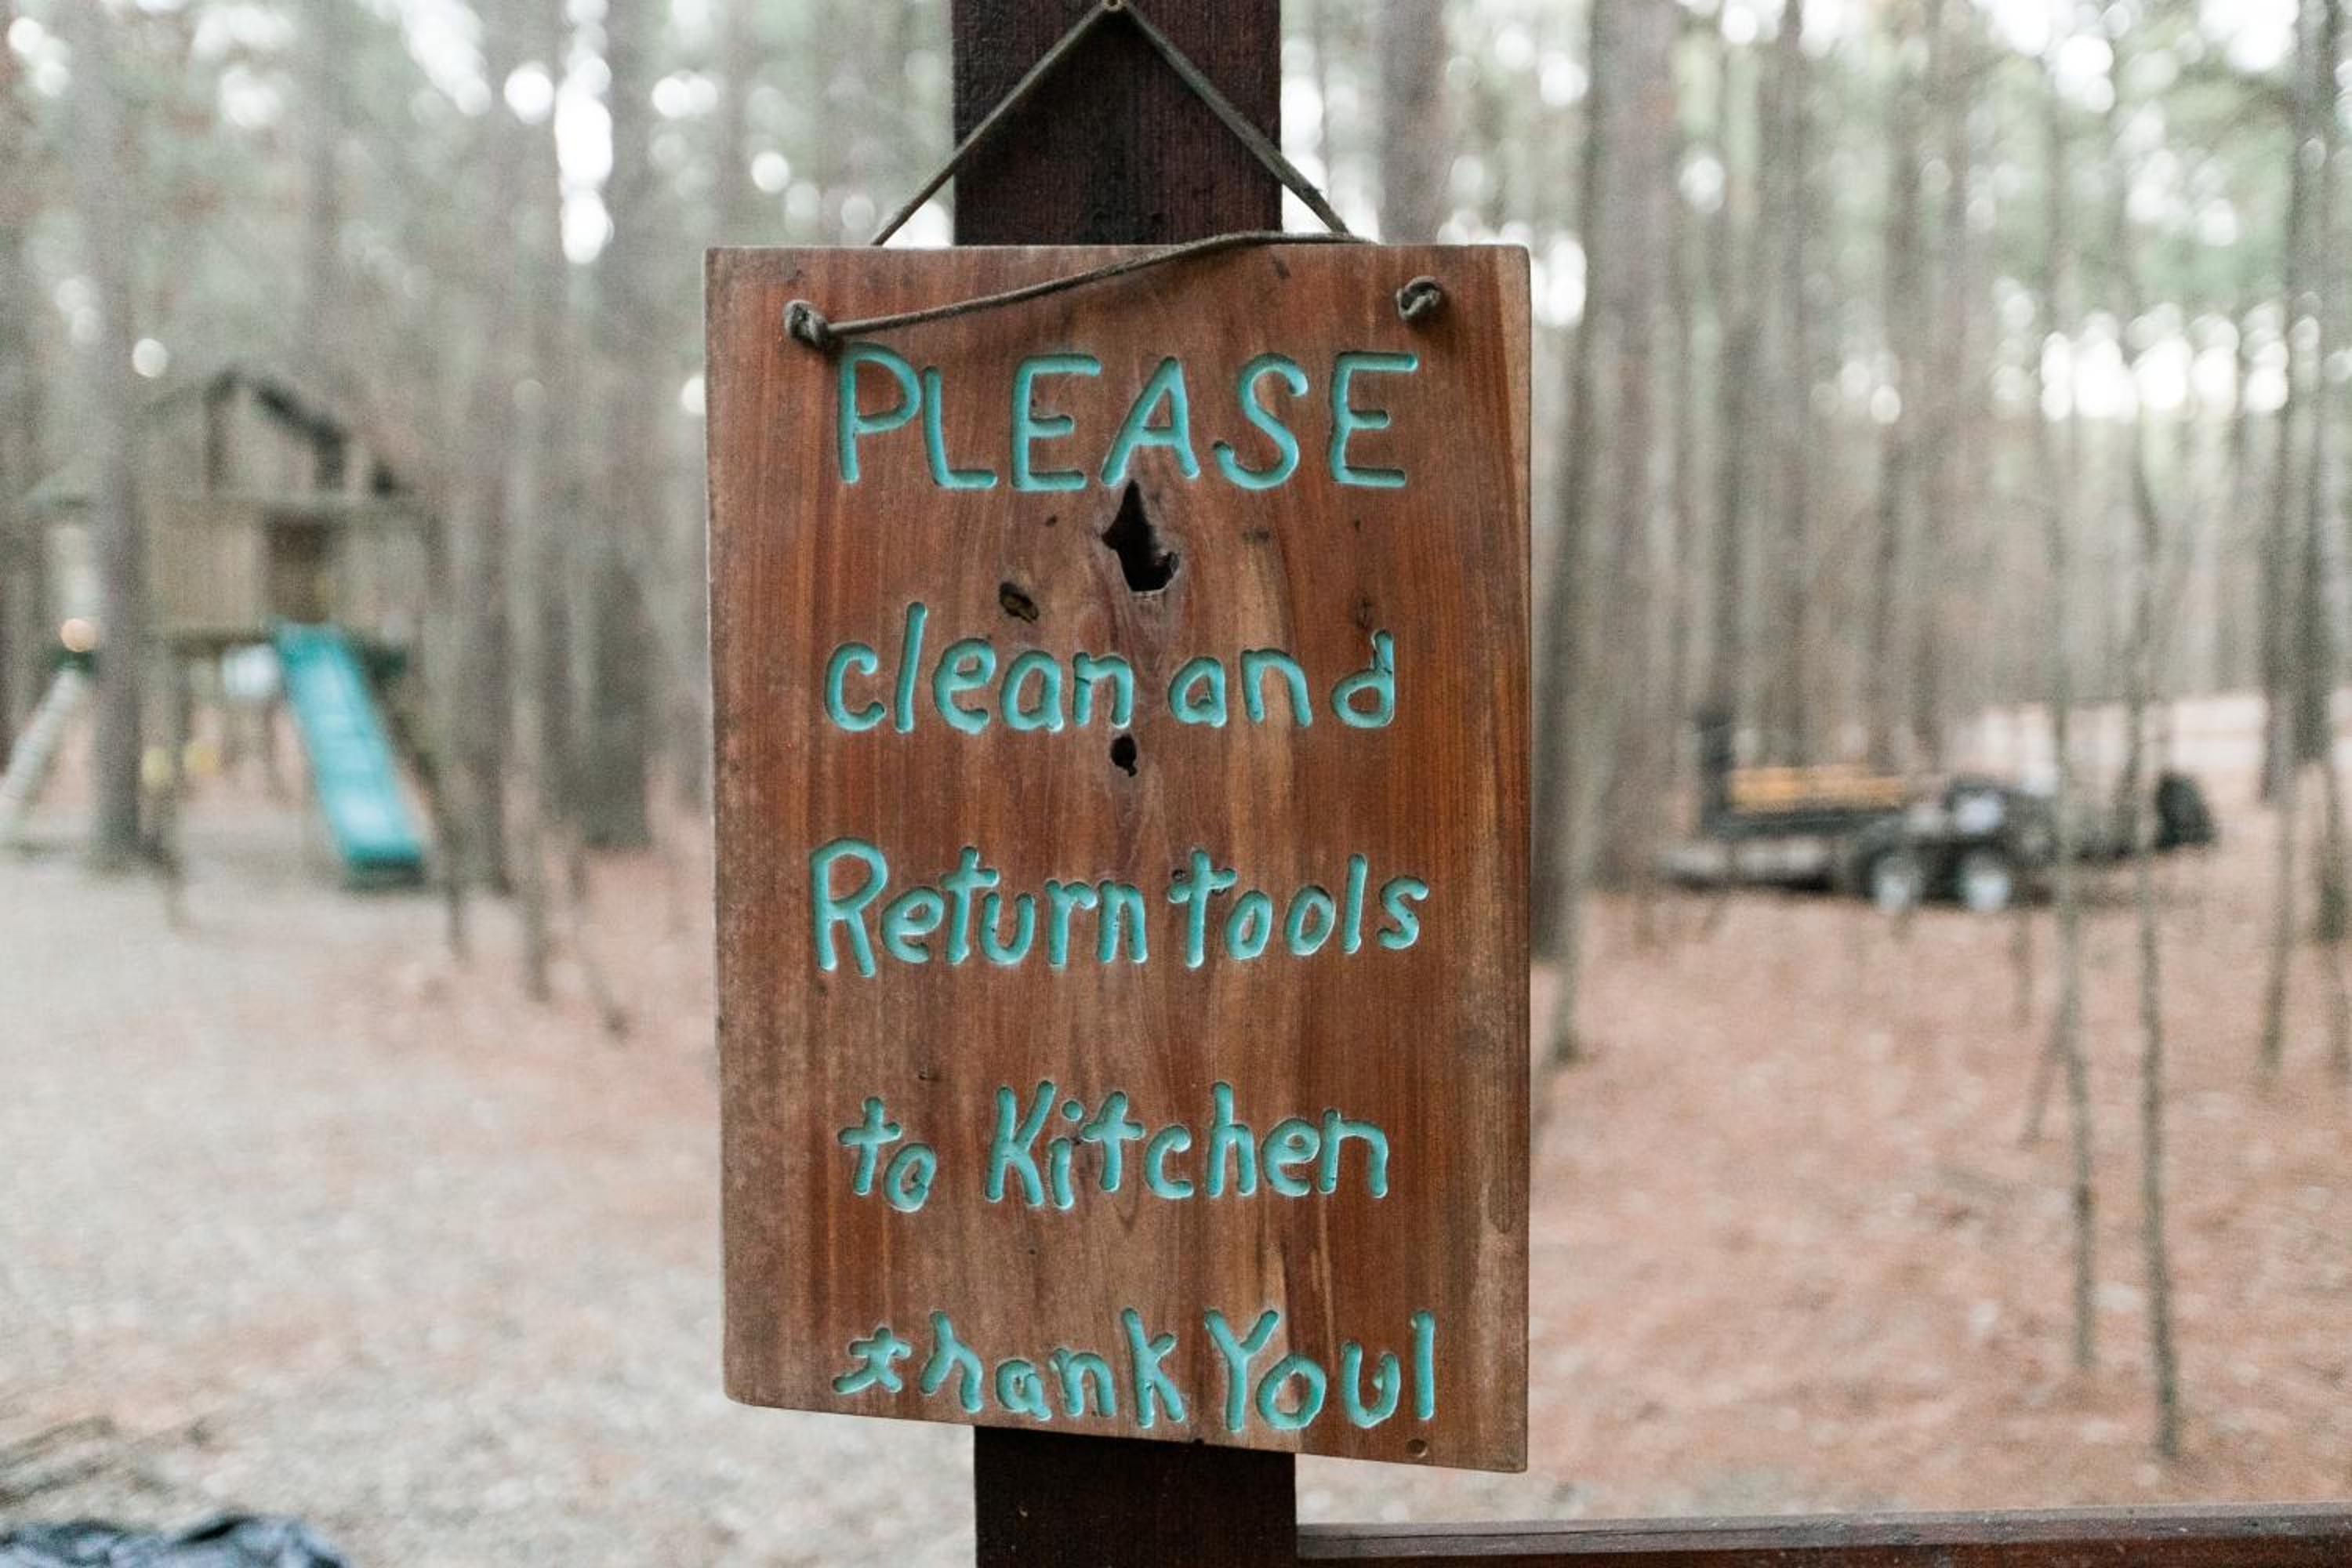 PLEASE
clean and
Return tools
to Kitchen
thank You!